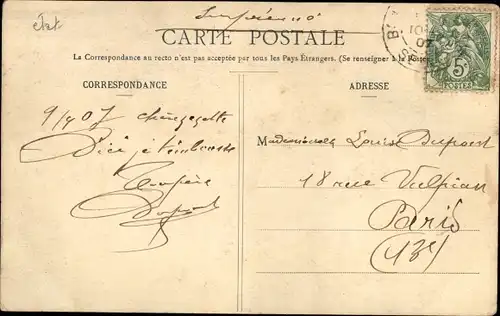 état
CARTE POSTALE
La Correspondance au recto n'est pas acceptée par tous les Pays Étrangers. (Se renseigner à la Poste
CORRESPONDANCE
ADRESSE
9/4 07
D'ici je t'embrasse
Dupont
5c
POSTES
Mademoiselle Louise Dupont
18 rue Vulpian
Paris
(13e)